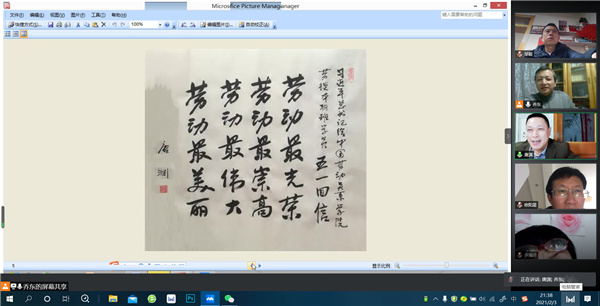 Microsoft Office Picture Manager
文件(F) 编辑(E) 视图(V) 图片(P) 工具(T) 帮助(H)
键入需要帮助的问题
快捷方式(S)...
100%
编辑图片(I)...
自动校正(A)
习近平总书记给中国劳动关系学院
劳模本科班学员 五一回信
劳动最光荣
劳动最崇高
劳动最伟大
劳动最美丽
唐渊
齐东
唐渊
显示比例
正在讲话: 唐渊; 齐东;
齐东的屏幕共享
电脑管家
21:38
2021/2/3